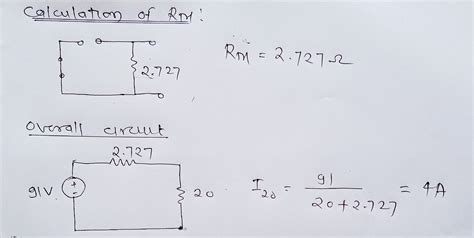 Calculation of RTH:
2.727
RTH = 2.727Ω
Overall circuit
2.727
91V
20
I20 = 91 / 20+2.727 = 4A